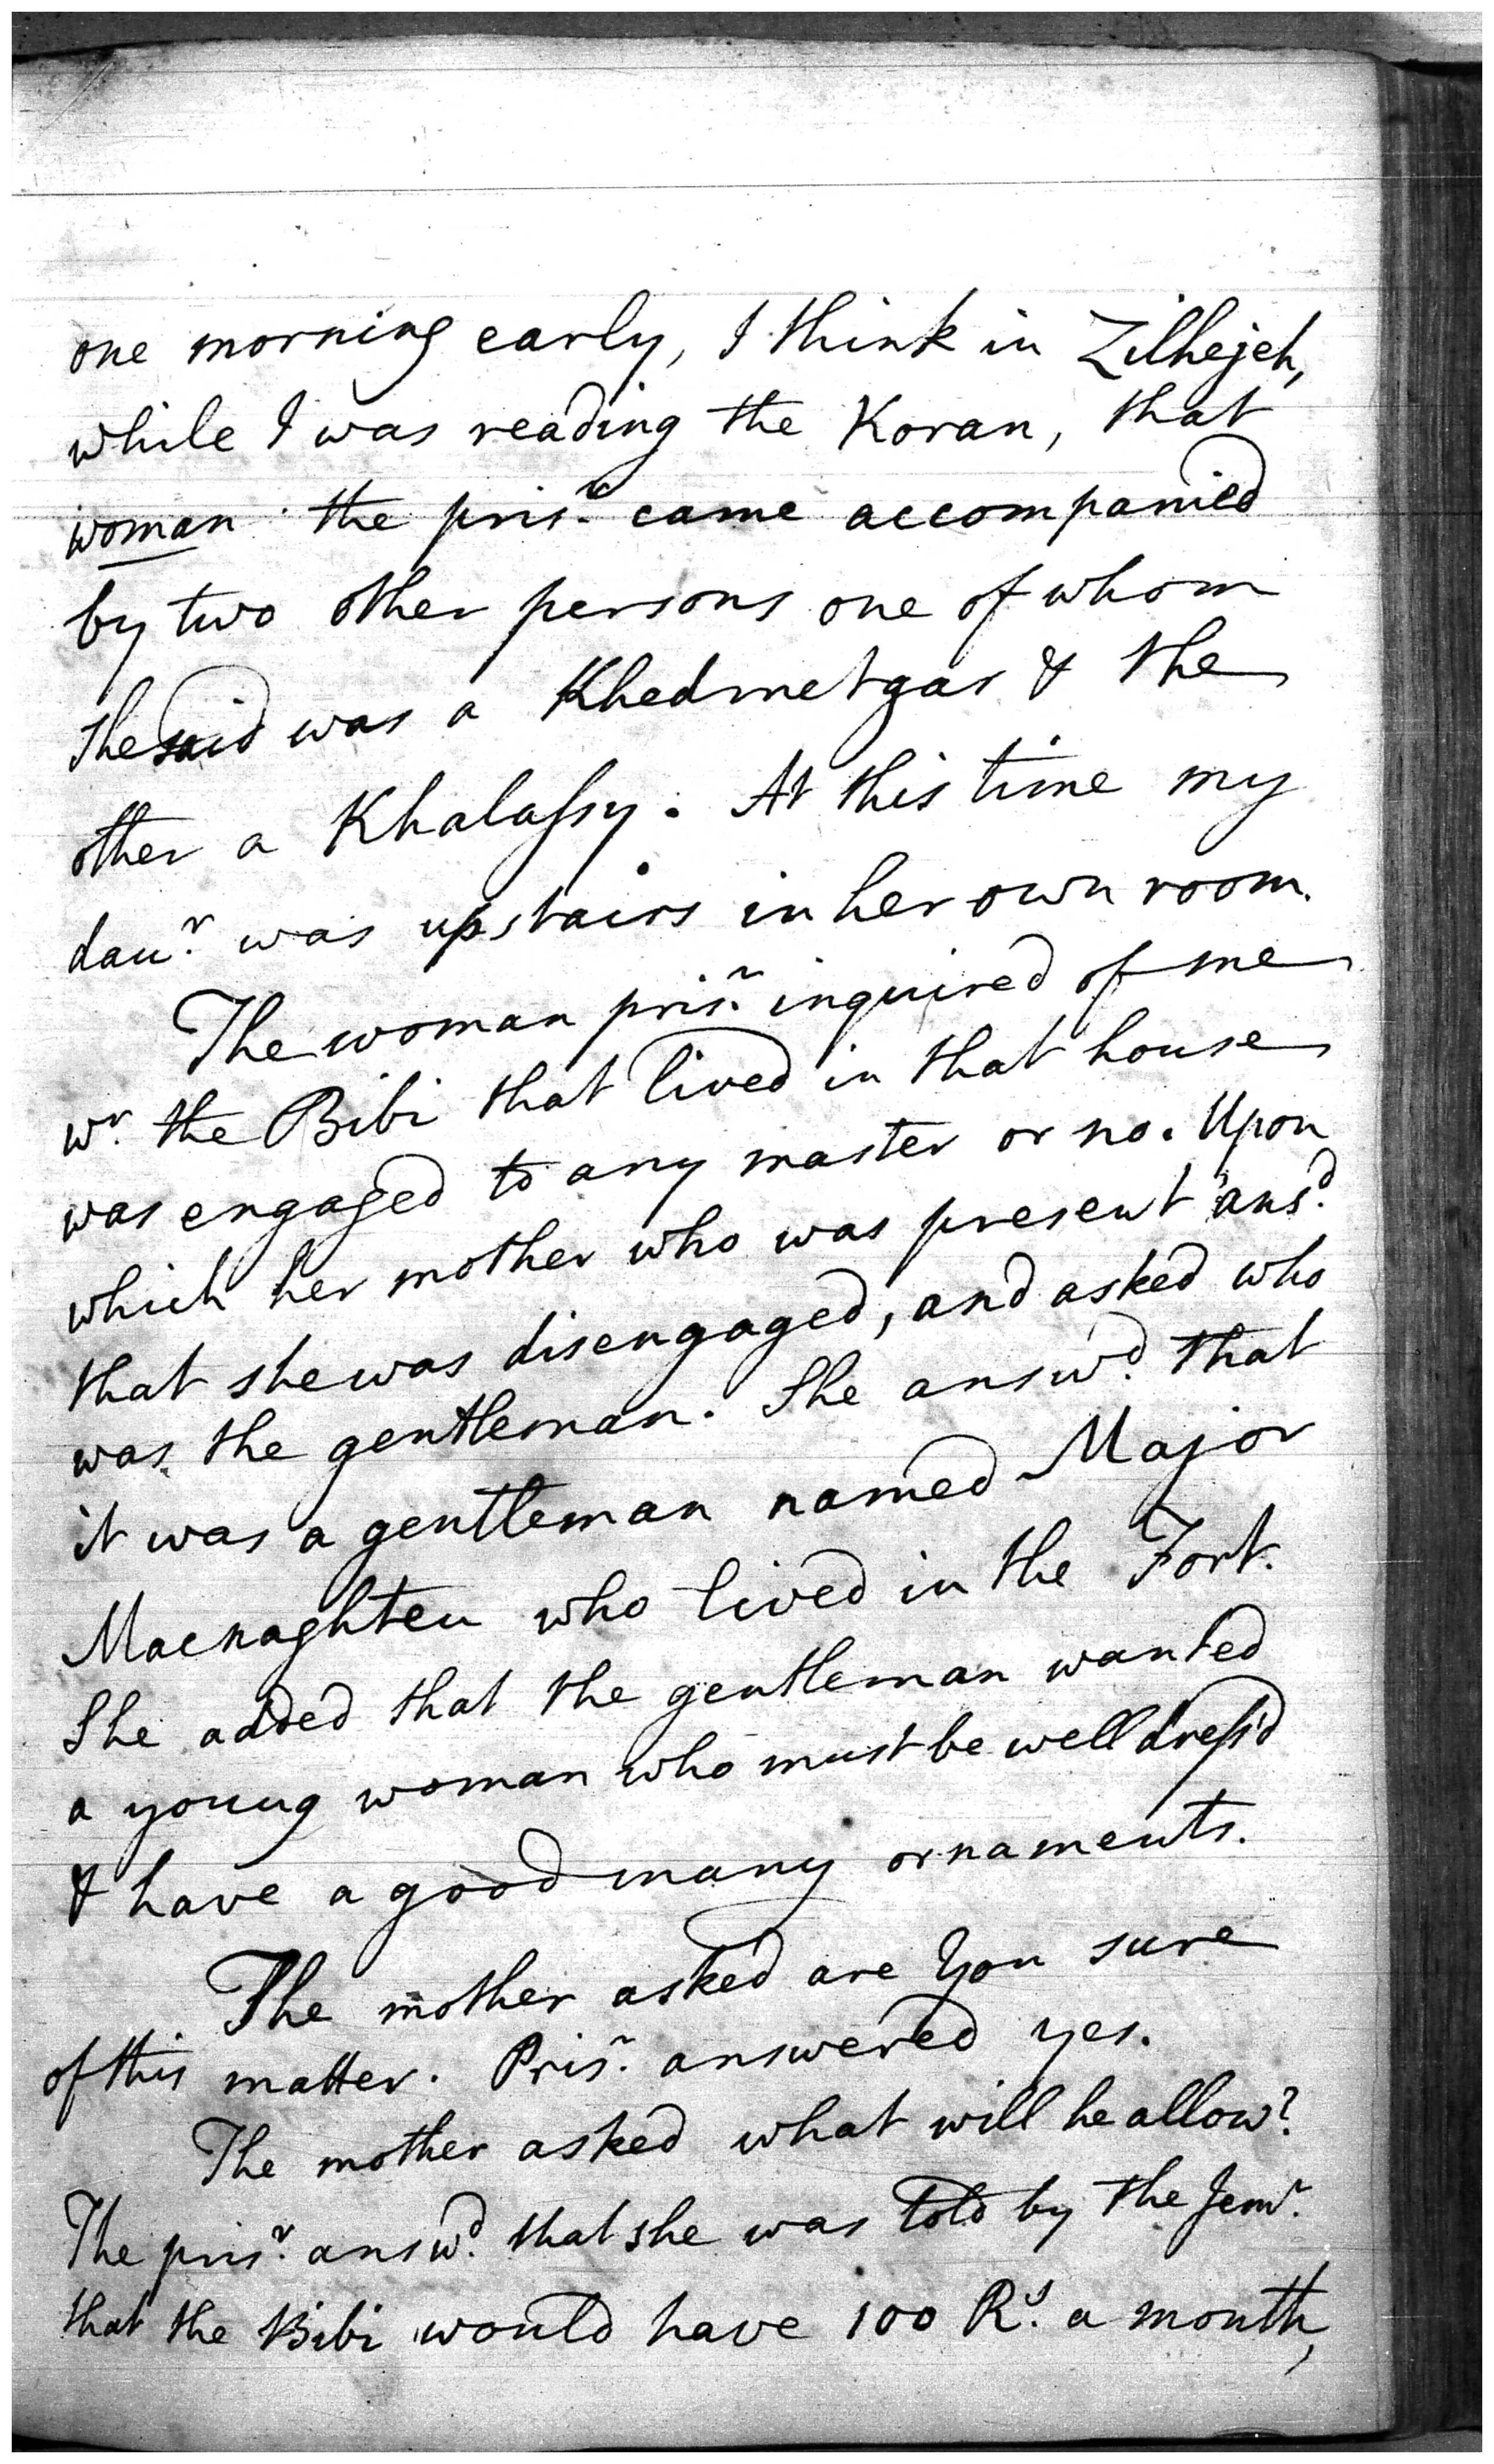 one morning early, I think in Zilhejeh,
while I was reading the Koran, that
woman the pris.r came accompanied
by two other persons one of whom
she said was a Khedmetgar & the
other a Khalaſsy. At this time my
dau.r was upstairs in her own room.
The woman pris.r inquired of me
w.r the Bibi that lived in that house
was engaged to any master or no. Upon
which her mother who was present ans.d
that she was disengaged, and asked who
was the gentleman. She answ.d that
it was a gentleman named Major
Macnaghten who lived in the Fort.
She added that the gentleman wanted
a young woman who must be well dreſs'd
& have a good many ornaments.
The mother asked are You sure
of this matter. Pris.r answered yes.
The mother asked what will he allow?
The pris.r answ.d that she was told by the Jem.r
that the Bibi would have 100 R.s a month,